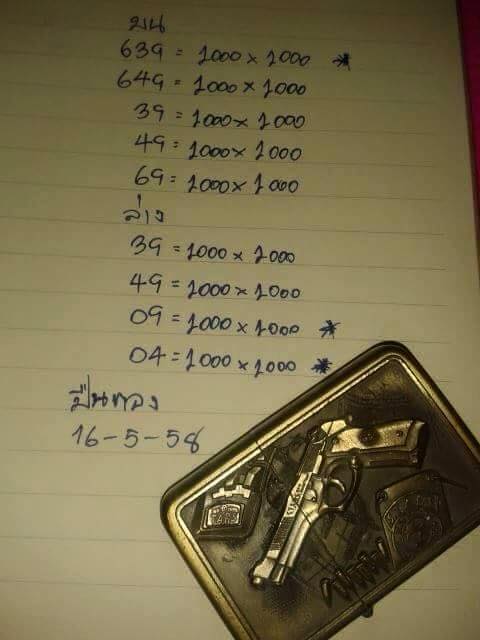 บน
639 = 1000 × 1000 *
649 = 1000 × 1000
39 = 1000 × 1000
49 = 1000 × 1000
69 = 1000 × 1000
ล่าง
39 = 1000 × 1000
49 = 1000 × 1000
09 = 1000 × 1000 *
04 = 1000 × 1000 *
ปืนทอง
16-5-58